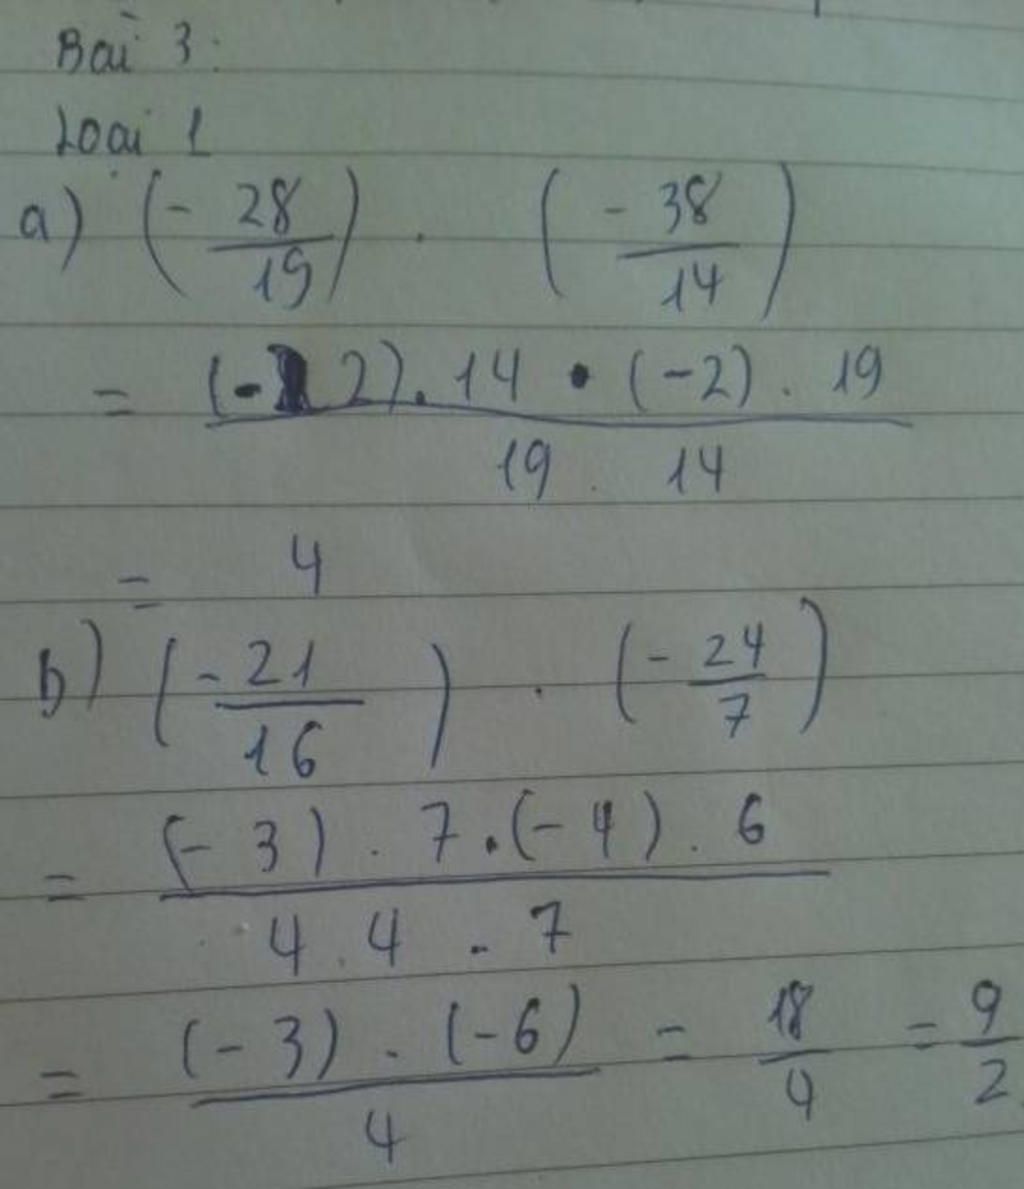 Bài 3:
Loại 1
a) (- 28/19) . (- 38/14)
= (-2).14 . (-2) . 19 / 19 . 14
= 4
b) (- 21/16) . (- 24/7)
= (- 3) . 7 . (- 4) . 6 / 4 . 4 . 7
= (- 3) . (- 6) / 4 = 18/4 = 9/2